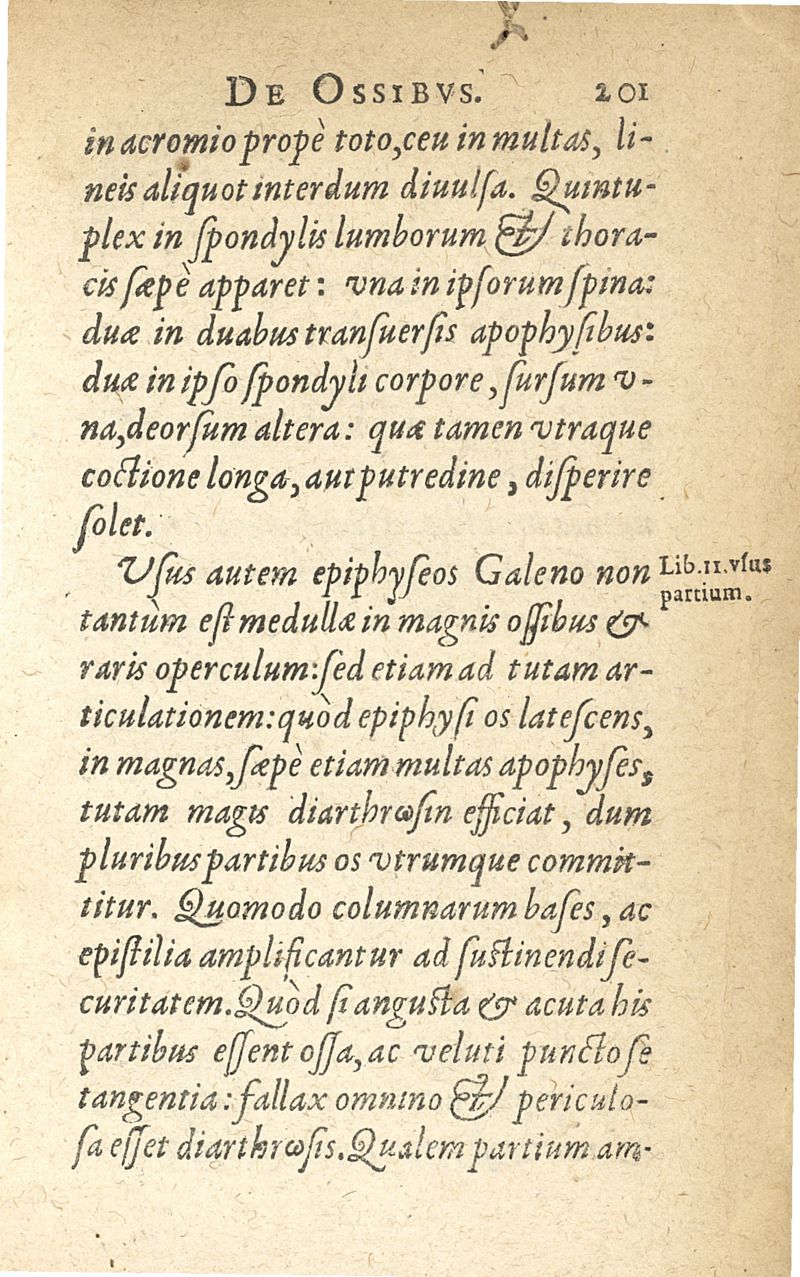 DE OSSIBVS. 201
in acromio propè toto, ceu in multas, li-
neis aliquot interdum diuulſa. Quintu-
plex in ſpondylis lumborum & thora-
cis ſæpè apparet: vna in ipſorum ſpina:
duæ in duabus tranſuerſis apophyſibus:
duæ in ipſo ſpondyli corpore, ſurſum v-
na, deorſum altera: quæ tamen vtraque
coctione longa, aut putredine, diſperire
ſolet.
Vſus autem epiphyſeos Galeno non
Lib. 11. vſus
partium.
tantùm eſt medullæ in magnis oſſibus &
raris operculum: ſed etiam ad tutam ar-
ticulationem: quòd epiphyſi os lateſcens,
in magnas, ſæpè etiam multas apophyſes,
tutam magis diarthrωſin efficiat, dum
pluribus partibus os vtrumque commit-
titur. Quomodo columnarum baſes, ac
epiſtilia amplificantur ad ſuſtinendi ſe-
curitatem. Quòd ſi anguſta & acuta his
partibus eſſent oſſa, ac veluti puncto ſe
tangentia: fallax omnino & periculo-
ſa eſſet diarthrωſis. Qualem partium am-